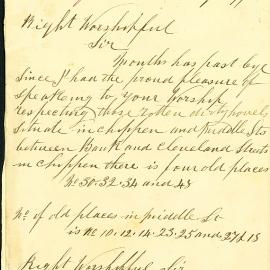 Right Worshipful
Sir
Months has past bye
Since I had the proud pleasure of
Speaking to your Worship
respecting those rotten dirty hovels
Situate in Chippen and Middle Sts
between Bank and Cleveland Streets
in Chippen there is four old places
No 30. 32. 34 and 43
No of old places in middle St
is No 10. 12. 14. 23. 25 and 27 & 18
Right Worshipful Sir